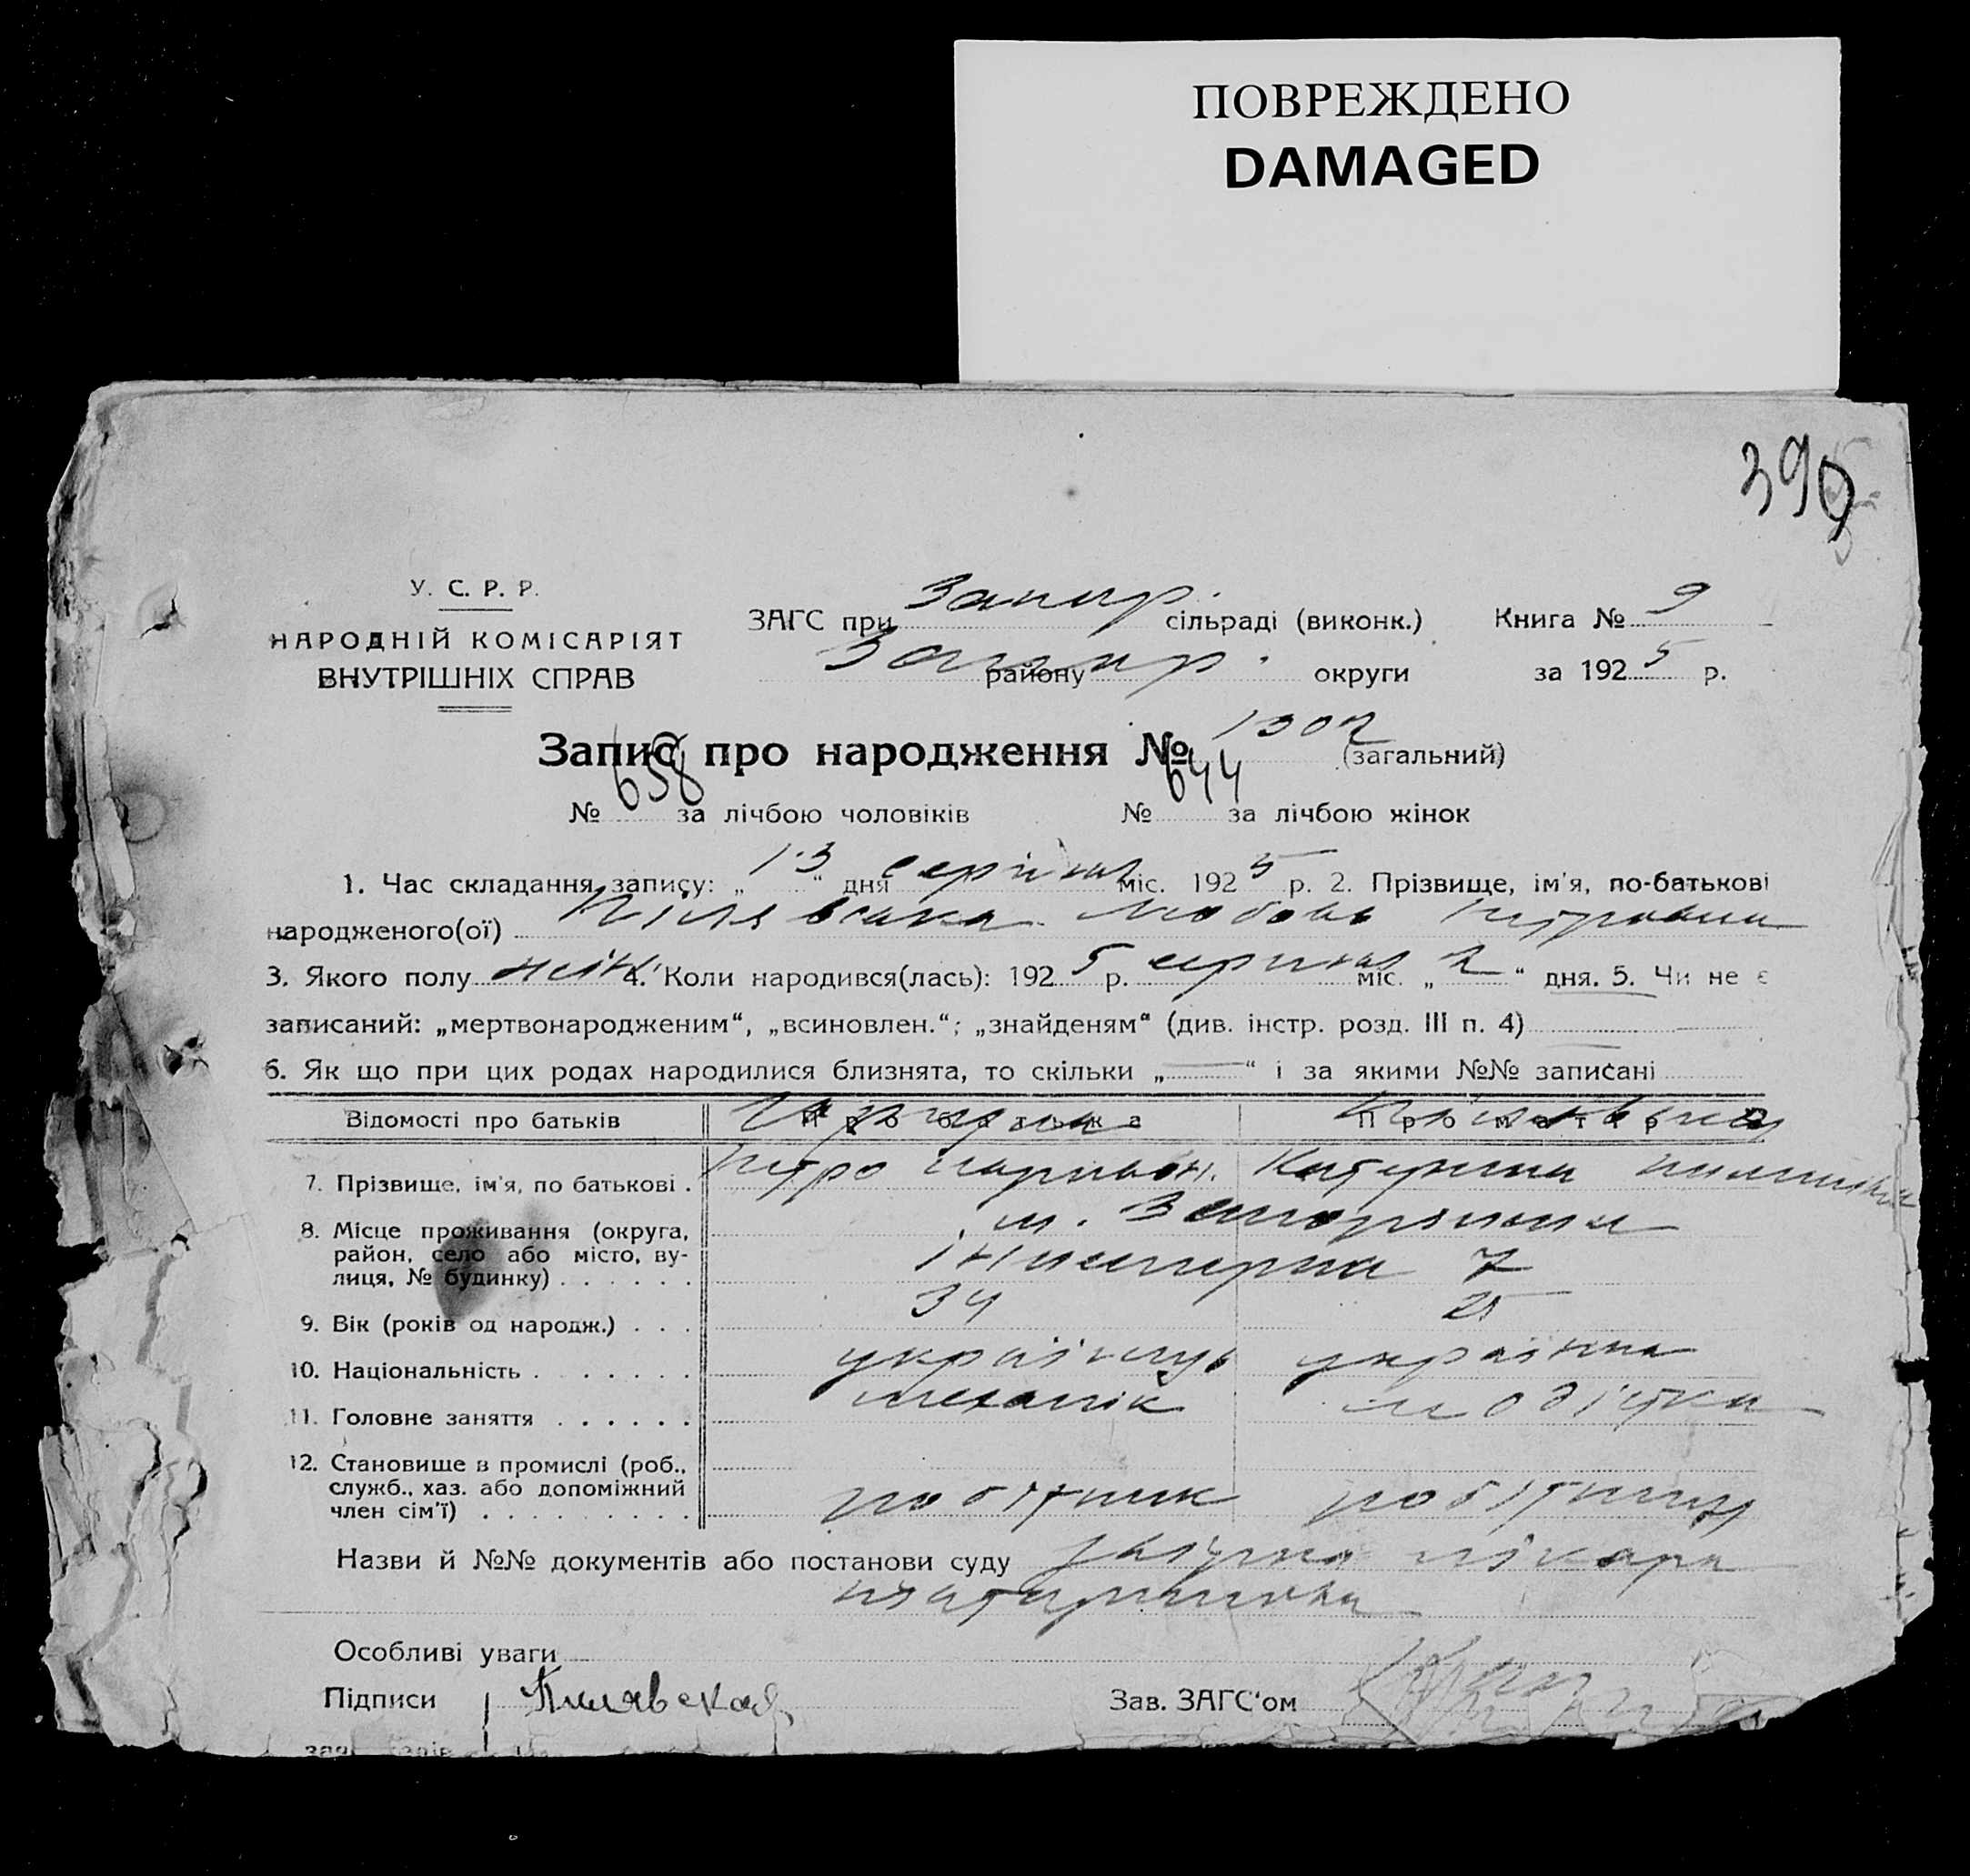 ПОВРЕЖДЕНО
DAMAGED
390
У. С. Р. Р.
НАРОДНІЙ КОМІСАРІЯТ
ВНУТРІШНІХ СПРАВ
ЗАГС при Запор. сільраді (виконк.) Книга № 9
Запор. району округи за 1925 р.
Запис про народження № 1302 (загальний)
№ 658 за лічбою чоловіків № 644 за лічбою жінок
1. Час складання запису: „13“ дня серпня міс. 1925 р. 2. Прізвище, ім'я, по-батькові
народженого(ої) Пілявська Любовь Петровна
3. Якого полу жін. 4. Коли народився(лась): 1925 р. серпня міс. „2“ дня. 5. Чи не є
записаний: „мертвонародженим“, „всиновлен.“; „знайденям“ (див. інстр. розд. III п. 4)
6. Як що при цих родах народилися близнята, то скільки „—“ і за якими №№ записані
Відомості про батьків Про батька Про матір
Пілявська
7. Прізвище, ім'я, по батькові . Петро Катерина
8. Місце проживання (округа, м. Запоріжжя
район, село або місто, ву-
лиця, № будинку) . . . . . . 7
9. Вік (років од народж.) . . . 34 25
10. Національність . . . . . . . українець українка
11. Головне заняття . . . . . . механік модістка
12. Становище в промислі (роб.,
служб., хаз. або допоміжний
член сім'ї) . . . . . . . . . робітник робітниця
Назви й №№ документів або постанови суду лікаря
Особливі уваги
Підписи Пилявская Зав. ЗАГС'ом